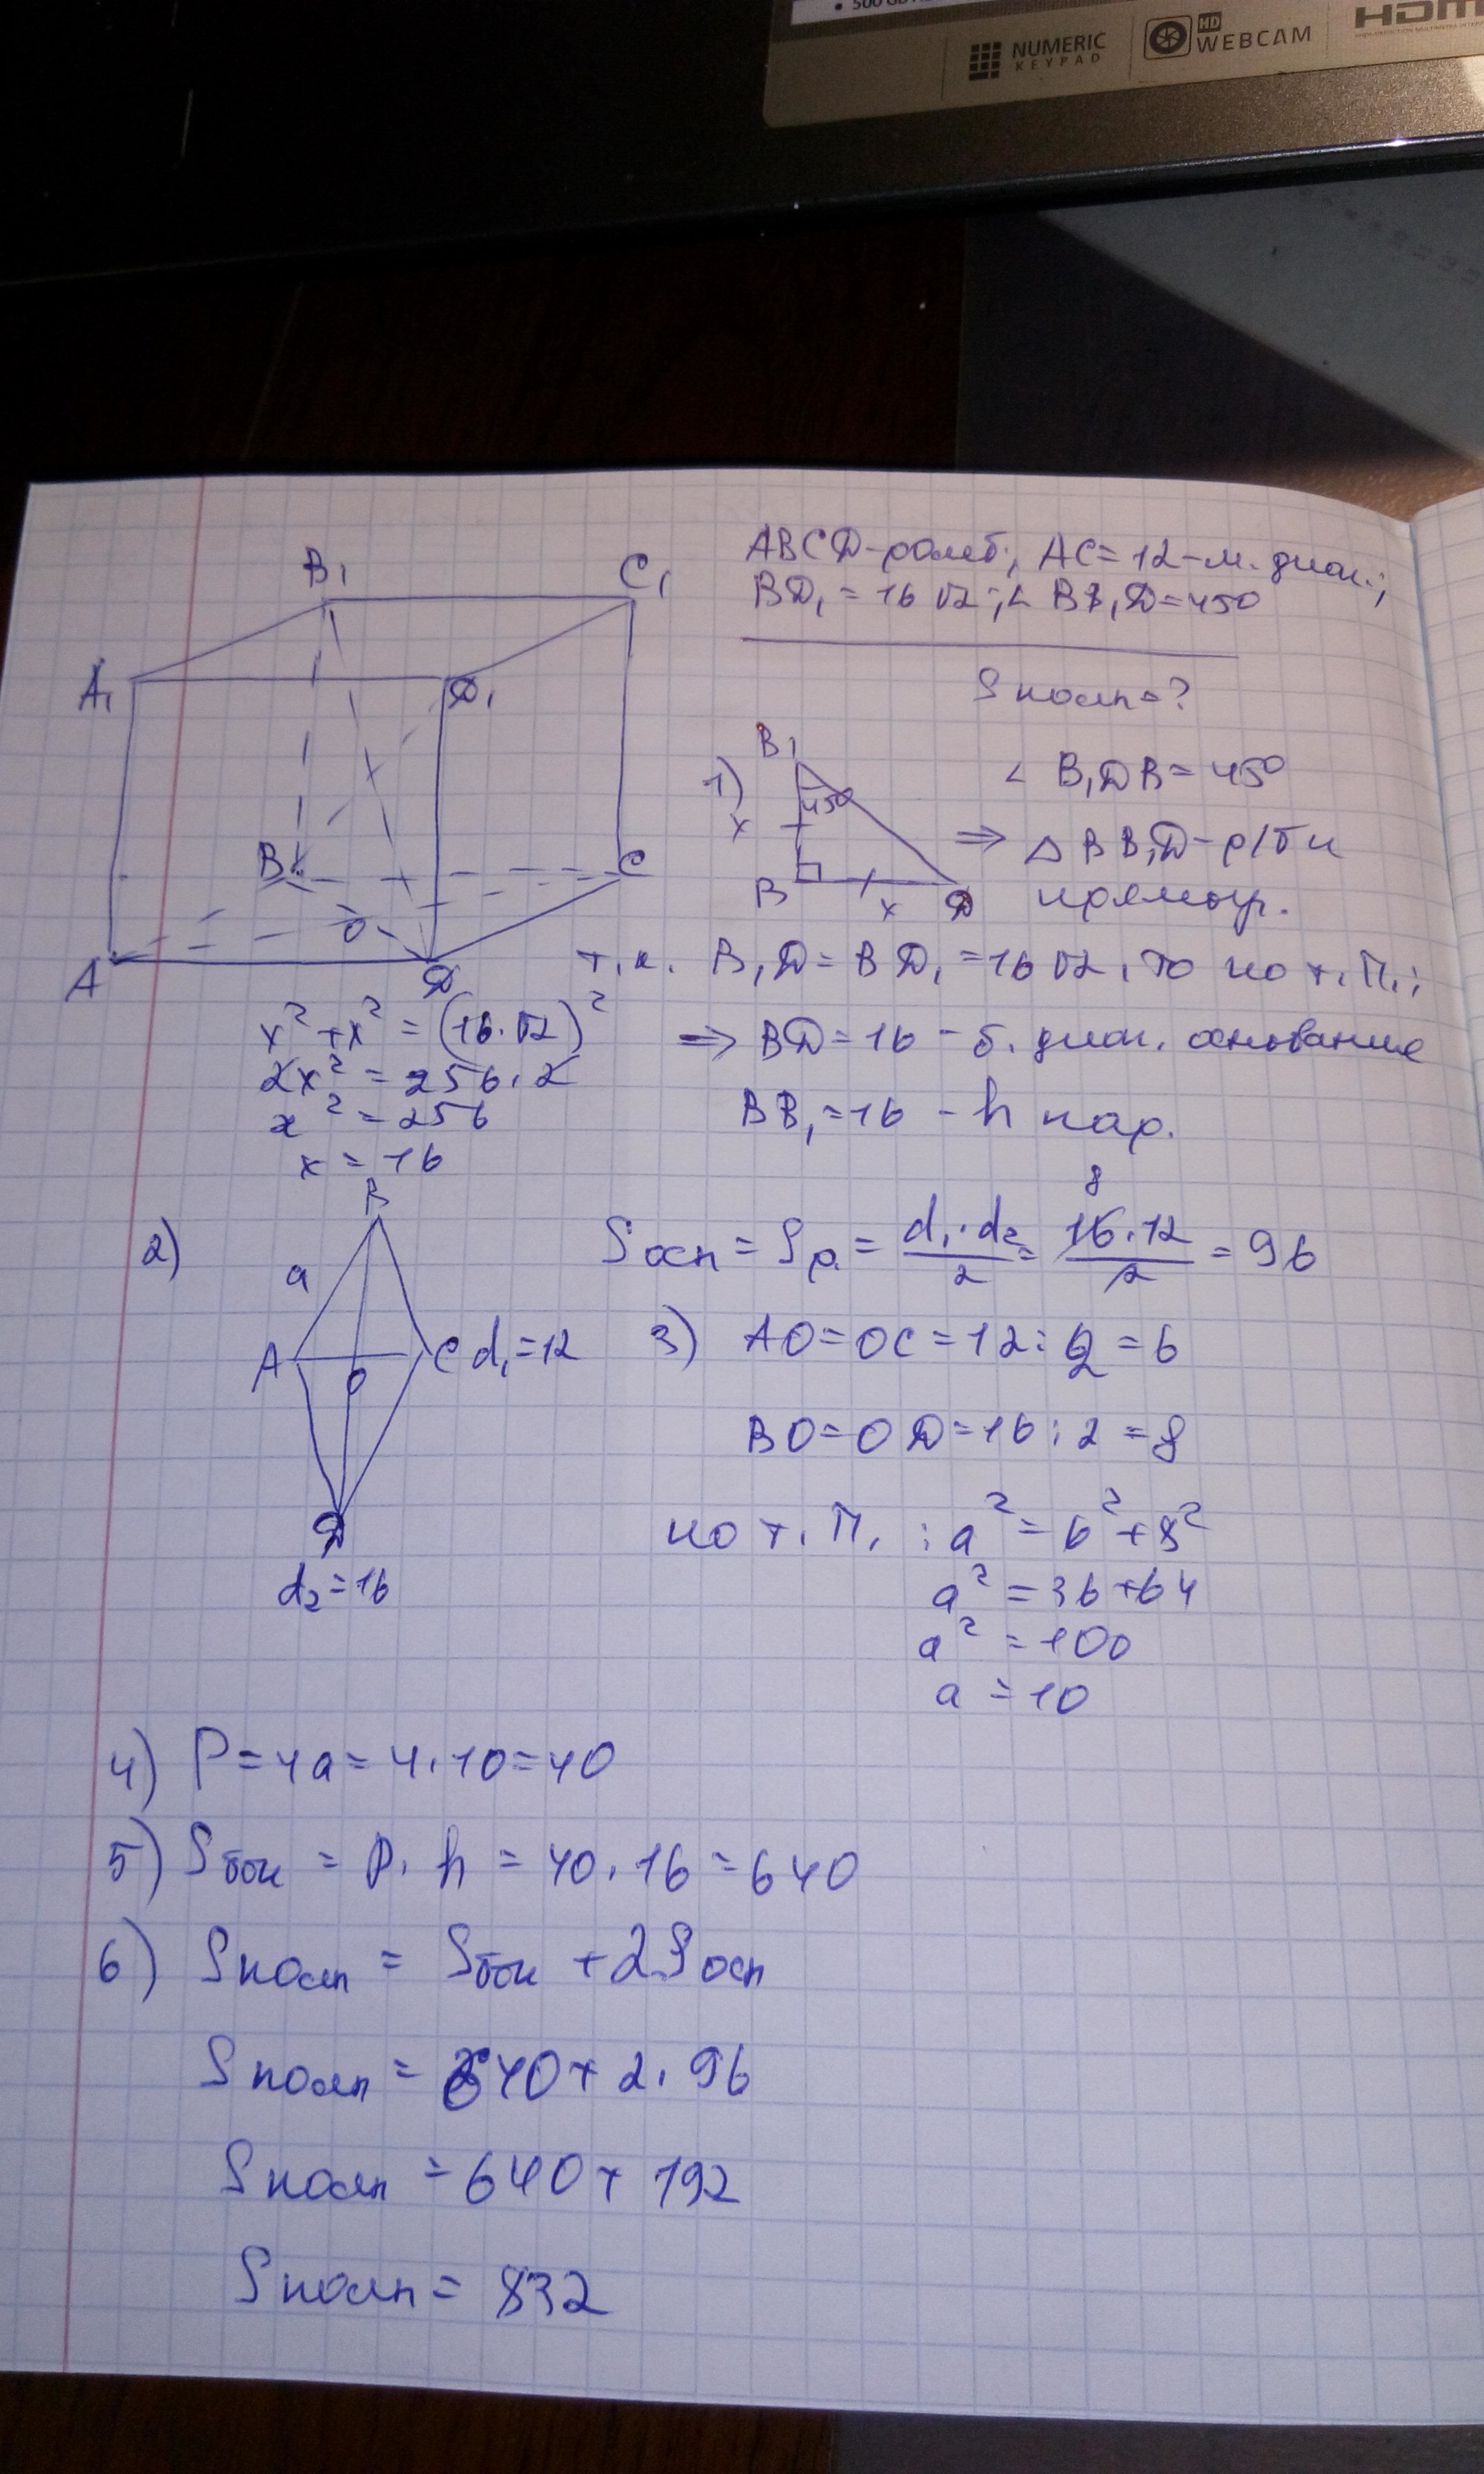 • 500 GB
NUMERIC KEYPAD
HD WEBCAM
HDMI
ABCD-ромб; AC=12-м. диаг.;
BD₁=16√2; ∠BB₁D=45°
Sполн=?
B₁ C₁
A₁ D₁
B C
O
A D
1) B₁
45°
x
B x D
∠B₁DB=45°
⇒ △BB₁D-р/б и
прямоуг.
т.к. B₁D=BD₁=16√2, то по т.П.:
x²+x²=(16·√2)²
2x²=256·2
x²=256
x=16
⇒ BD=16 - б. диаг. основания
BB₁=16 - h пар.
2) B
a
A O C d₁=12
D
d₂=16
Sосн = Sр. = d₁·d₂/2 = 16·12/2 = 96
8
3) AO=OC=12:2=6
BO=OD=16:2=8
по т.П.: a²=6²+8²
a²=36+64
a²=100
a=10
4) P=4a=4·10=40
5) Sбок = P·h = 40·16=640
6) Sполн = Sбок + 2Sосн
Sполн = 640+2·96
Sполн = 640+192
Sполн = 832